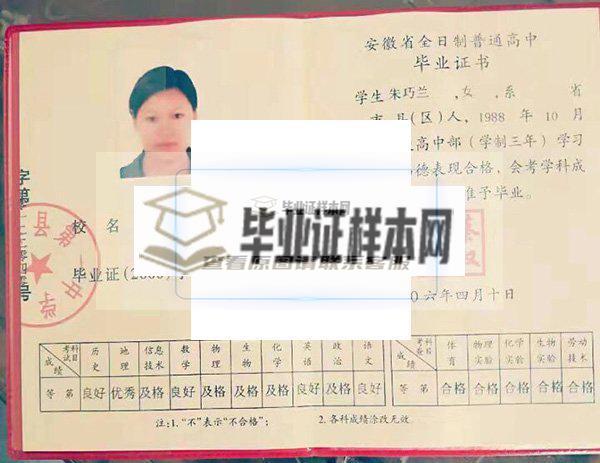 安徽省全日制普通高中
毕业证书
学生 朱巧兰 ,女 ,系 省
市 县(区)人, 1988 年 10 月
高中部（学制三年）学习
德表现合格，会考学科成
准予毕业。
校 名
毕业证(2006)
〇六年四月十日
毕业证样本网
毕业证样本网
查看原图请联系客服
考试科目 历史 地理 信息技术 数学 物理 生物 化学 英语 政治 语文
成绩
等 第 良好 优秀 及格 良好 及格 及格 及格 良好 良好 良好
考查科目 体育 物理实验 化学实验 生物实验 劳动技术
成绩
等 第 合格 合格 合格 合格 合格
注:1. “不”表示“不合格”； 2. 各科成绩涂改无效.